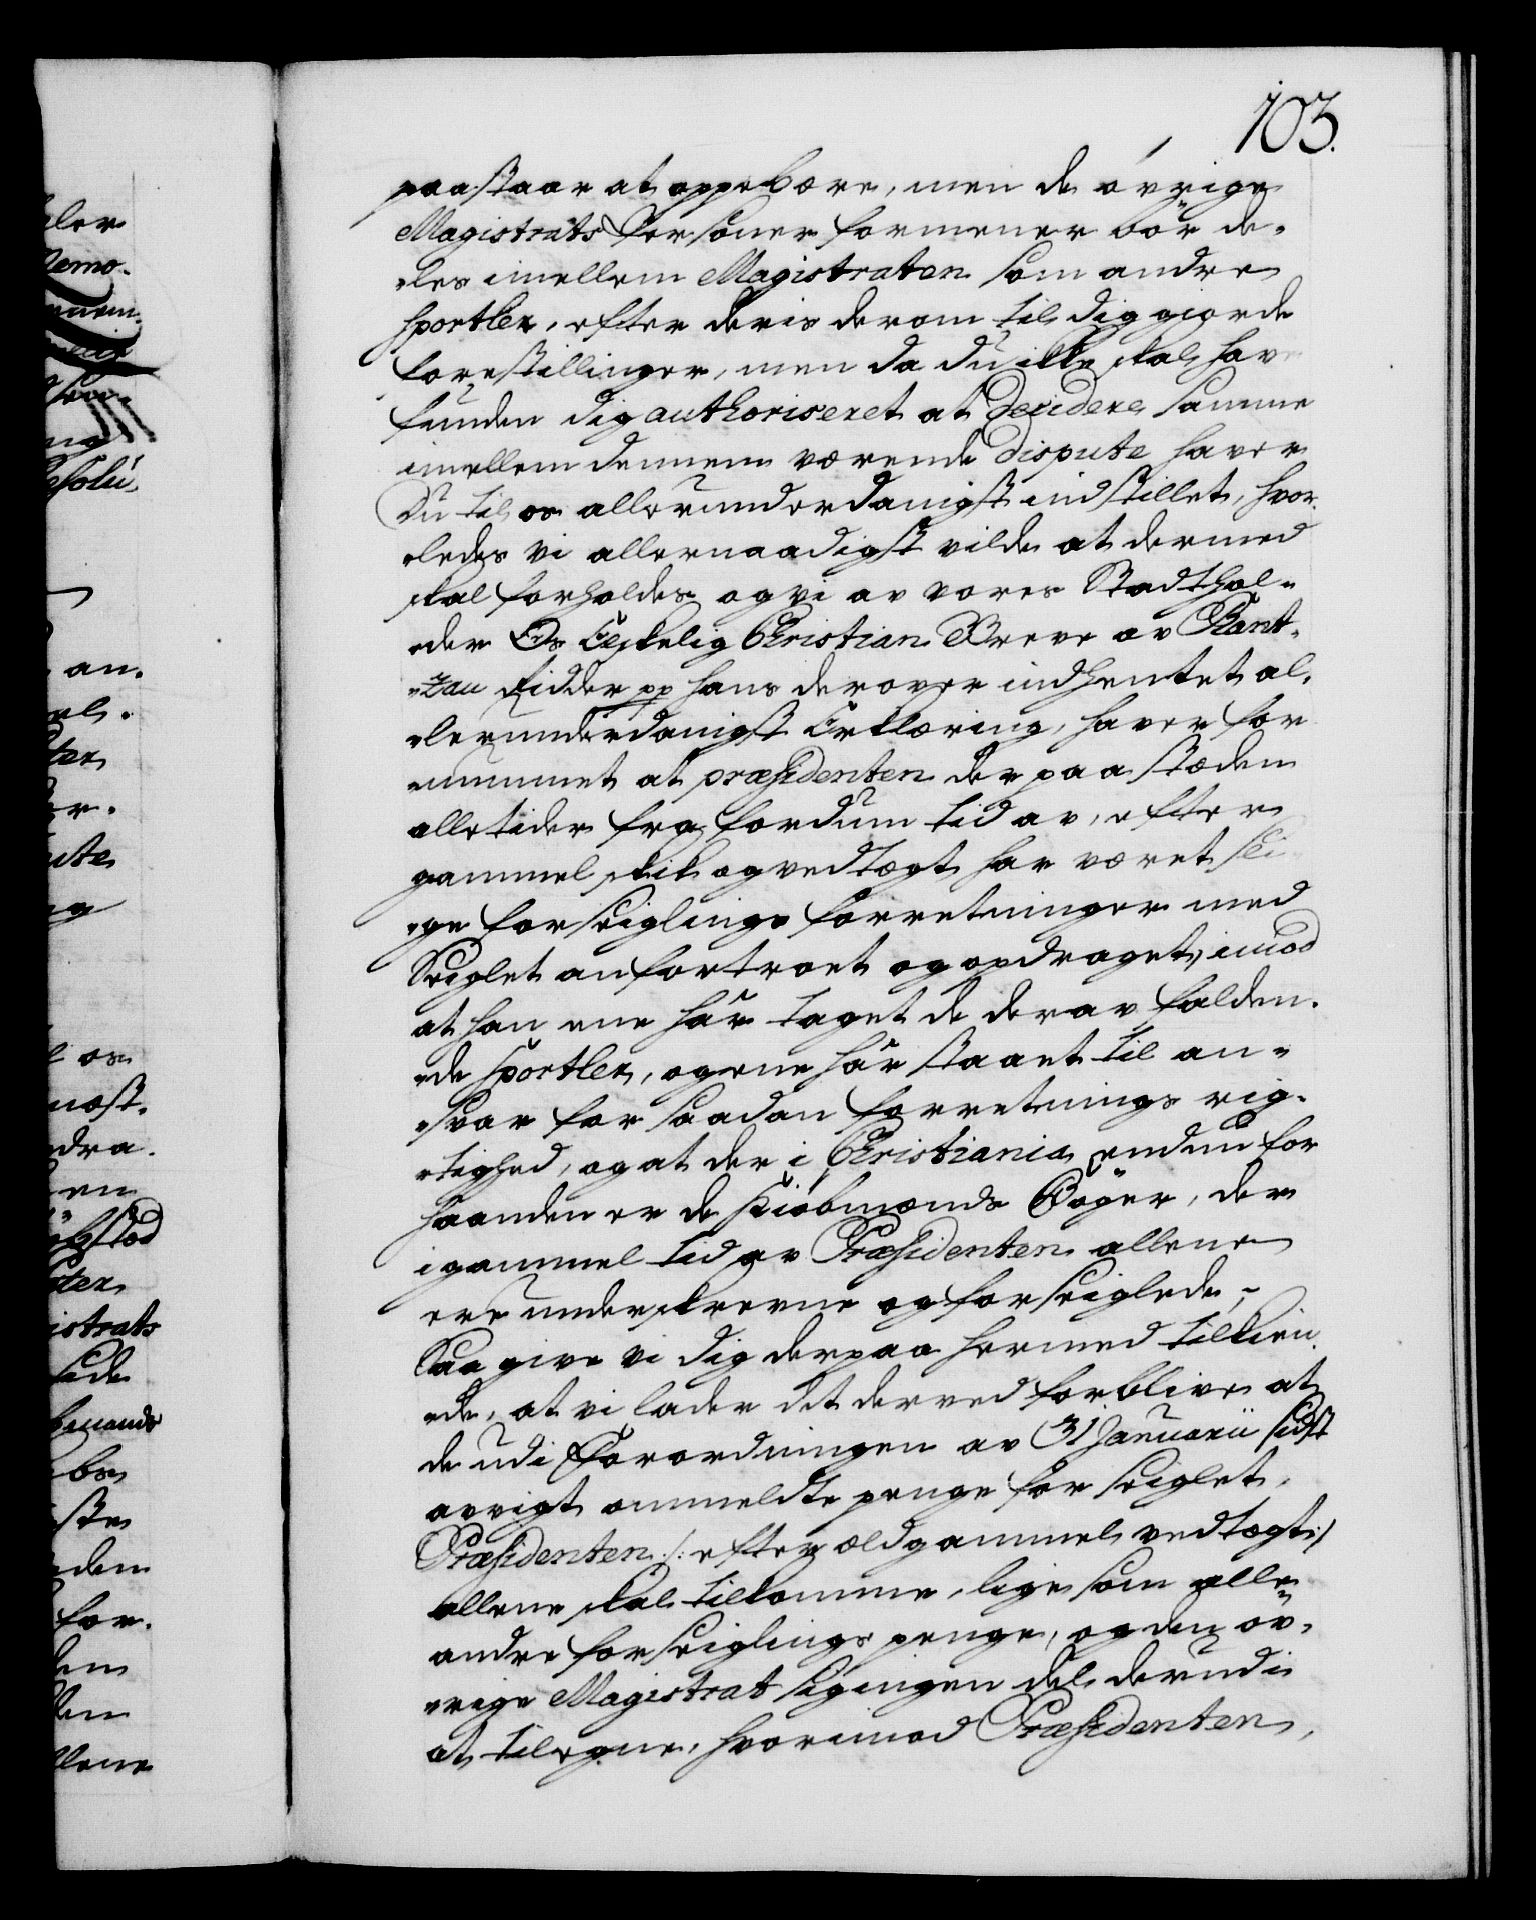 103.
paastaar at oppebære, men de övrige
Magistrats Personer formener bör de-
-les imellem Magistraten som andre
Sportler, efter deris derom til dig giorde
forestillinger, men da du ikke skal have
funden dig authoriseret at decidere samme
imellem dennem værende dispute haver
Du til os allerunderdanigst indstillet, hvor
-ledes vi allernaadigst vilde at dermed
skal forholdes, og vi av vores Stadthol-
-der Os Elskelig Christian Greve av Rant-
-zau Ridder pp hans derover indhentet al-
-lerunderdanigst Erklæring, haver for
-nummet at præsidenten der paa stæden
alletider fra fordum tid av, efter
gammel skik og vedtægt har været sli
-ge forseiglings forretninger med
Seiglet anfortroet og opdraget, imod
at han ene har taget de derav falden-
-de Sportler, og ene har staaet til an-
-svar for saadan forretnings rig-
-tighed, og at der i Christiania endnu for
haanden er de Kiöbmænds Böger, der
i gammel tid av Præsidenten allene
ere underskrevne og forseiglede,-
Saa give vi dig derpaa hermed tilkien
-de, at vi lader det derved forblive at
de udi Forordningen av 31 Januarii sidst
avvigt ommeldte penge for Seiglet,
Præsidenten /: efter ældgammel vedtægt :/
allene skal tilkomme, lige som alle
andre forseiglings penge, og den öv-
-rige Magistrat sig ingen del derudi
at tilegne, hvorimod Præsidenten,